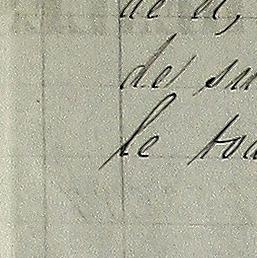 de
de su
le tou